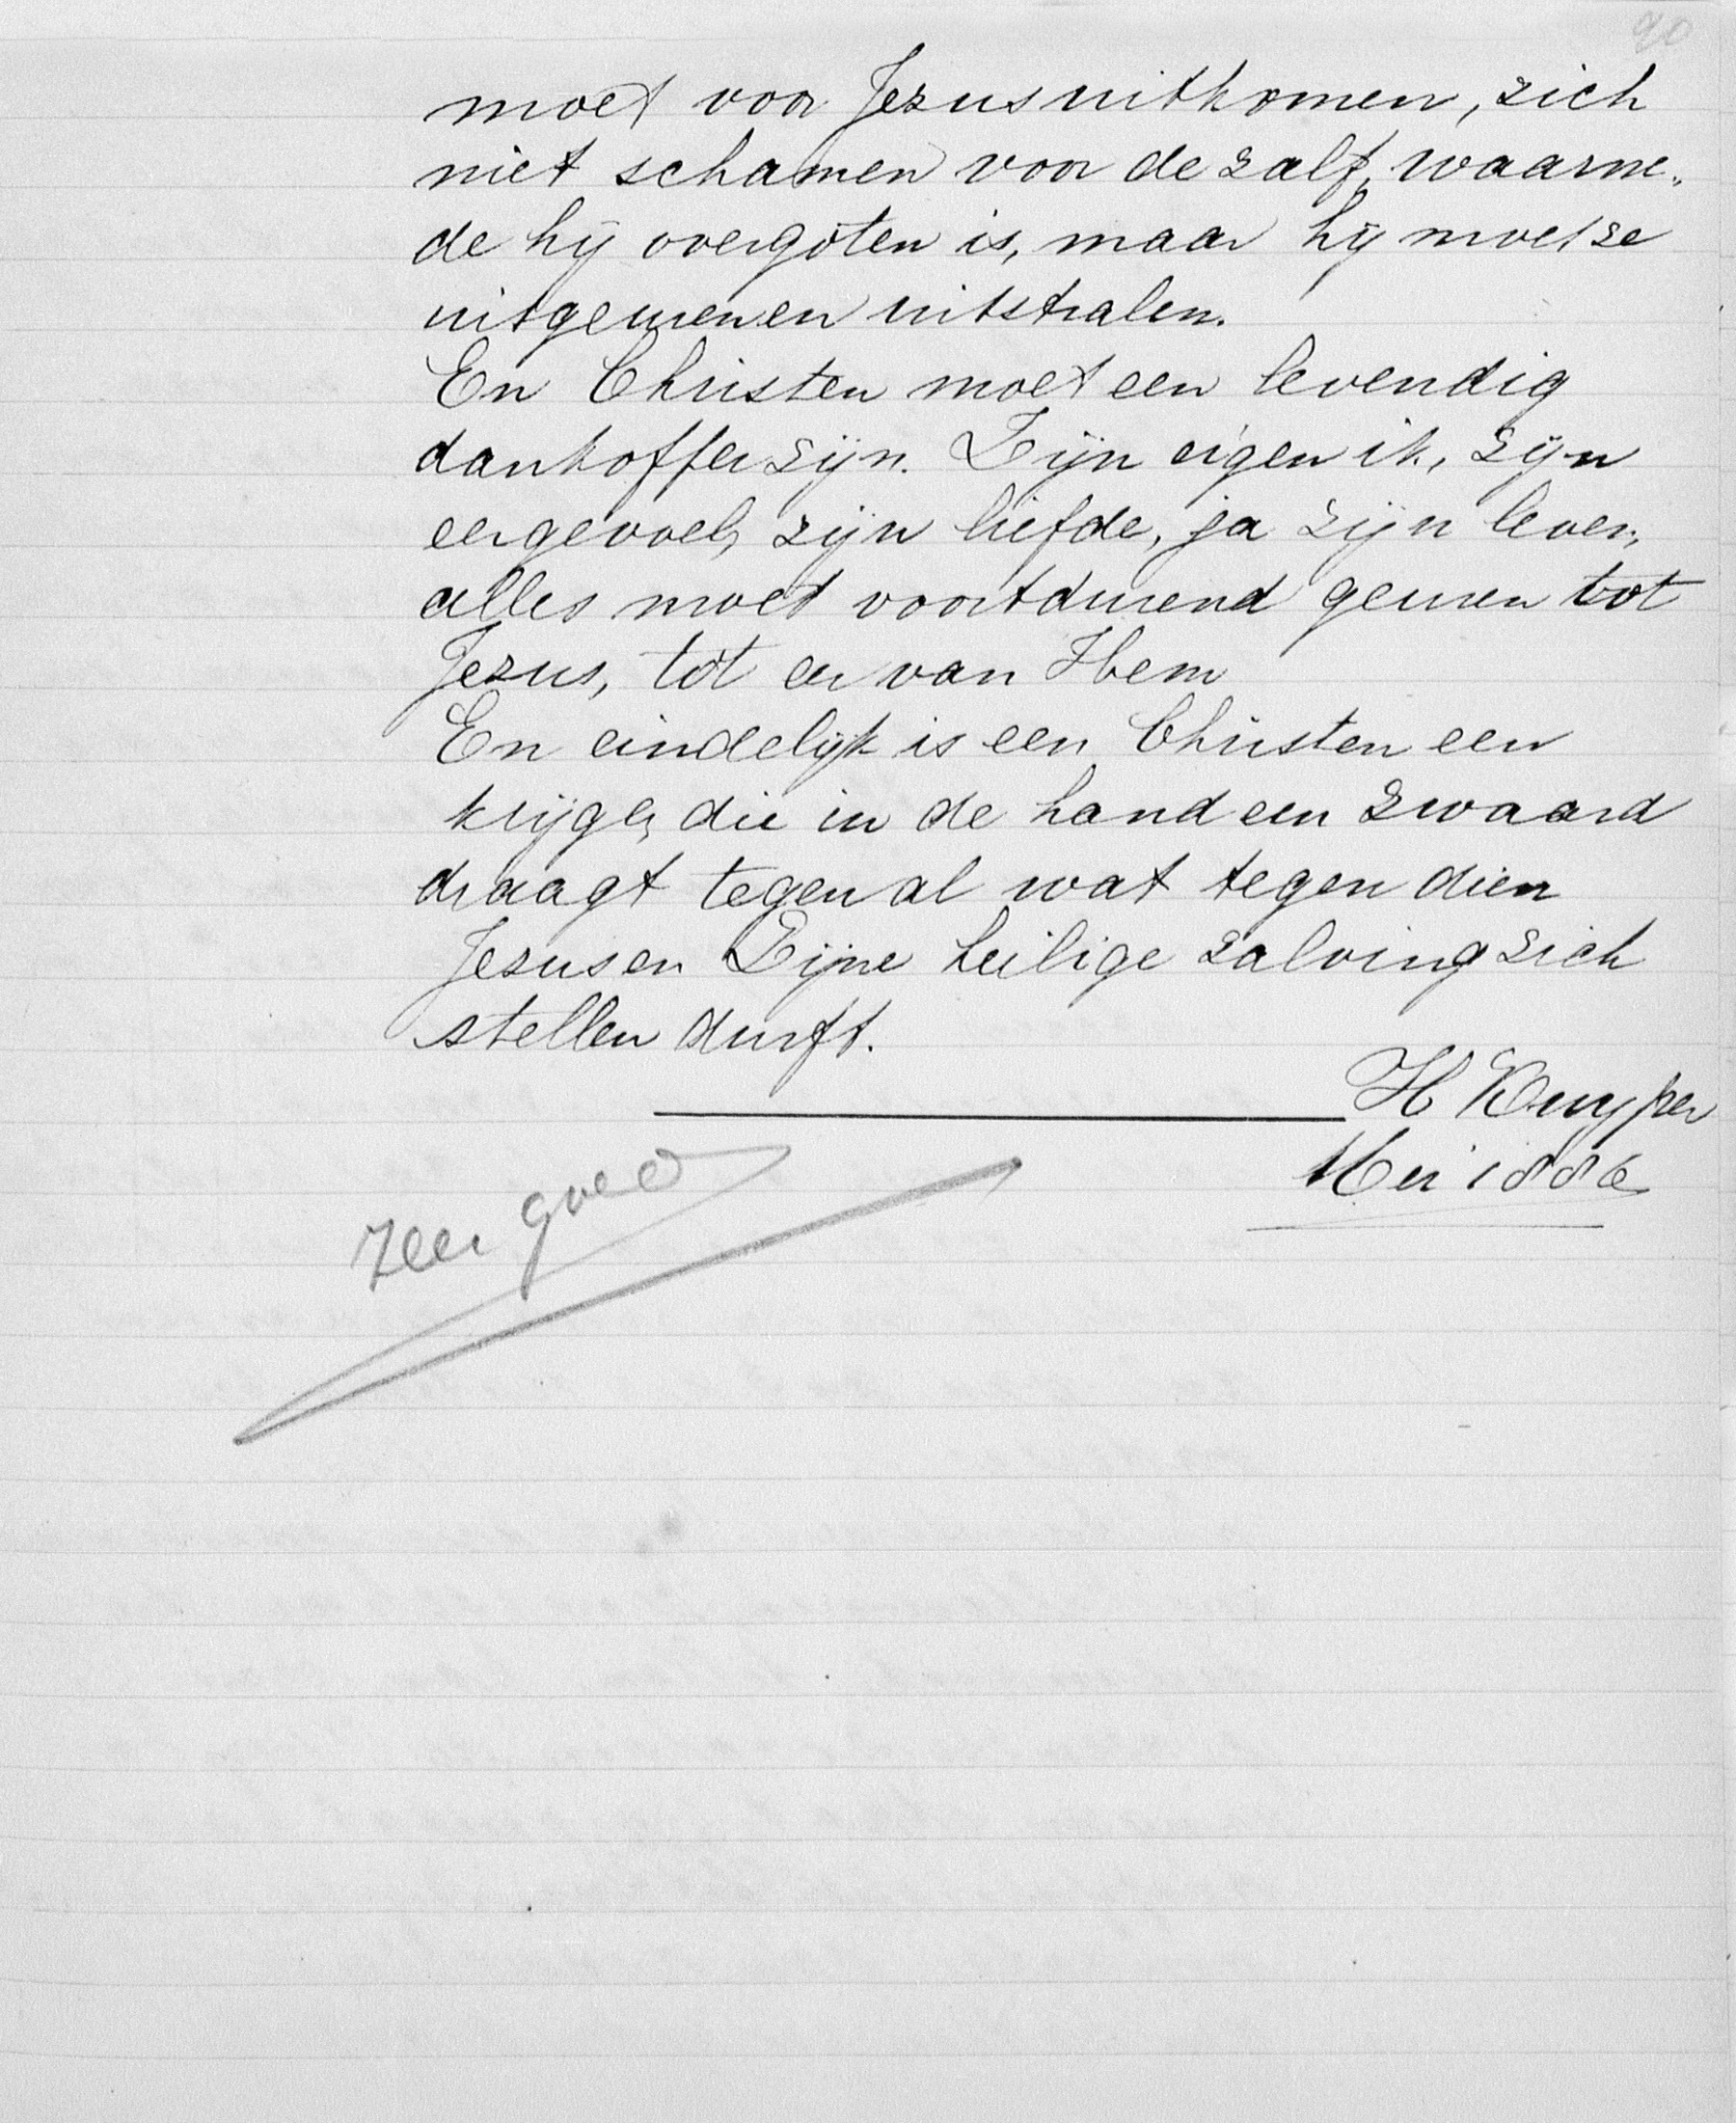 90
moet voor Jezus uitkomen, zich
niet schamen voor de zalf, waarme-
de hij overgoten is, maar hij moet ze
uitgeuren en uitstralen.
En Christen moet een levendig
dankoffer zijn. Zijn eigen ik, zijn
eergevoel, zijn liefde, ja zijn leven,
alles moet voortdurend geuren tot
Jezus, tot eer van Hem
En eindelijk is een Christen een
krijger, die in de hand een zwaard
draagt tegen al wat tegen dien
Jezus en Zijne heilige zalving zich
stellen durft.
H Kuyper
Mei 1886
Zeer goed